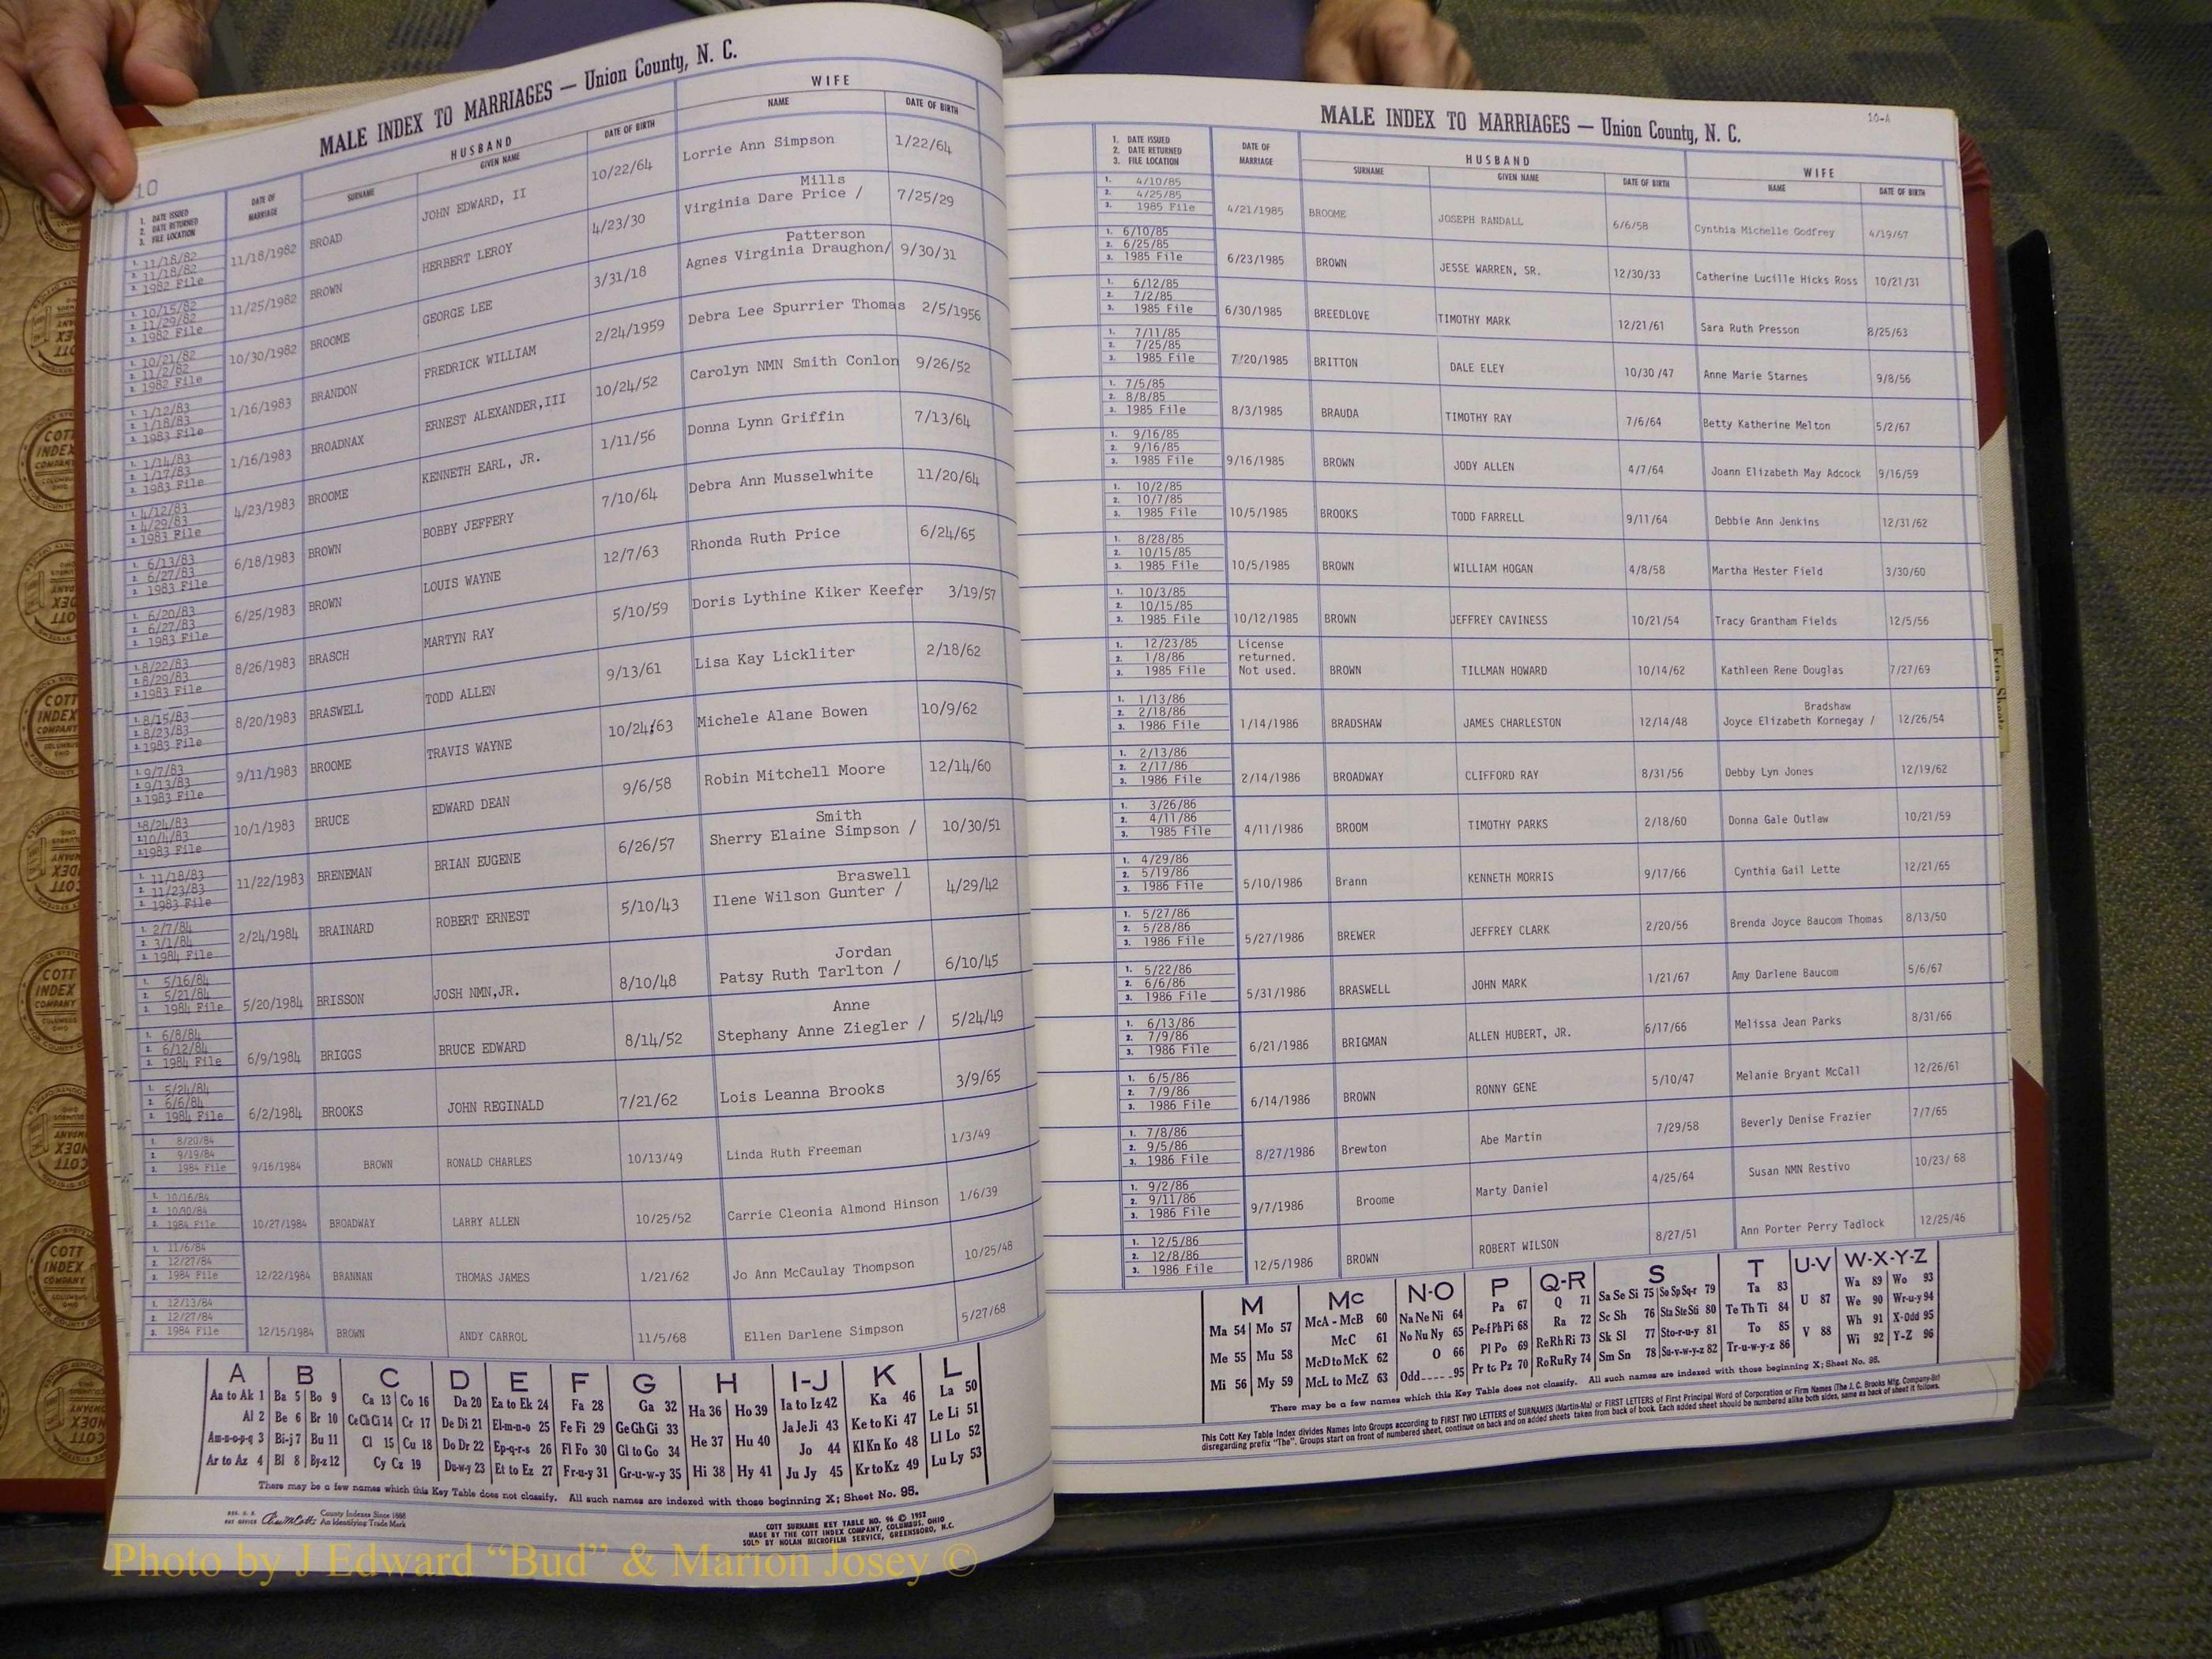 10
MALE INDEX TO MARRIAGES — Union County, N. C.
1. DATE ISSUED 2. DATE RETURNED 3. FILE LOCATION
DATE OF MARRIAGE
HUSBAND
SURNAME GIVEN NAME DATE OF BIRTH
WIFE
NAME DATE OF BIRTH
1. 11/18/82 2. 11/18/82 3. 1982 File 11/18/1982 BROAD JOHN EDWARD, II 10/22/64 Lorrie Ann Simpson 1/22/64
1. 10/15/82 2. 11/29/82 3. 1982 File 11/25/1982 BROWN HERBERT LEROY 4/23/30 Virginia Dare Price / Mills 7/25/29
1. 10/21/82 2. 11/2/82 3. 1982 File 10/30/1982 BROOME GEORGE LEE 3/31/18 Agnes Virginia Draughon/ Patterson 9/30/31
1. 1/12/83 2. 1/18/83 3. 1983 File 1/16/1983 BRANDON FREDRICK WILLIAM 2/24/1959 Debra Lee Spurrier Thomas 2/5/1956
1. 1/14/83 2. 1/17/83 3. 1983 File 1/16/1983 BROADNAX ERNEST ALEXANDER,III 10/24/52 Carolyn NMN Smith Conlon 9/26/52
1. 4/12/83 2. 4/29/83 3. 1983 File 4/23/1983 BROOME KENNETH EARL, JR. 1/11/56 Donna Lynn Griffin 7/13/64
1. 6/13/83 2. 6/27/83 3. 1983 File 6/18/1983 BROWN BOBBY JEFFERY 7/10/64 Debra Ann Musselwhite 11/20/64
1. 6/20/83 2. 6/27/83 3. 1983 File 6/25/1983 BROWN LOUIS WAYNE 12/7/63 Rhonda Ruth Price 6/24/65
1. 8/22/83 2. 8/29/83 3. 1983 File 8/26/1983 BRASCH MARTYN RAY 5/10/59 Doris Lythine Kiker Keefer 3/19/57
1. 8/15/83 2. 8/23/83 3. 1983 File 8/20/1983 BRASWELL TODD ALLEN 9/13/61 Lisa Kay Lickliter 2/18/62
1. 9/7/83 2. 9/13/83 3. 1983 File 9/11/1983 BROOME TRAVIS WAYNE 10/24/63 Michele Alane Bowen 10/9/62
1. 8/24/83 2. 10/4/83 3. 1983 File 10/1/1983 BRUCE EDWARD DEAN 9/6/58 Robin Mitchell Moore 12/14/60
1. 11/18/83 2. 11/23/83 3. 1983 File 11/22/1983 BRENEMAN BRIAN EUGENE 6/26/57 Sherry Elaine Simpson / Smith 10/30/51
1. 2/7/84 2. 3/1/84 3. 1984 File 2/24/1984 BRAINARD ROBERT ERNEST 5/10/43 Ilene Wilson Gunter / Braswell 4/29/42
1. 5/16/84 2. 5/21/84 3. 1984 File 5/20/1984 BRISSON JOSH NMN,JR. 8/10/48 Patsy Ruth Tarlton / Jordan 6/10/45
1. 6/8/84 2. 6/12/84 3. 1984 File 6/9/1984 BRIGGS BRUCE EDWARD 8/14/52 Stephany Anne Ziegler / Anne 5/24/49
1. 5/24/84 2. 6/6/84 3. 1984 File 6/2/1984 BROOKS JOHN REGINALD 7/21/62 Lois Leanna Brooks 3/9/65
1. 8/20/84 2. 9/19/84 3. 1984 File 9/16/1984 BROWN RONALD CHARLES 10/13/49 Linda Ruth Freeman 1/3/49
1. 10/16/84 2. 10/30/84 3. 1984 File 10/27/1984 BROADWAY LARRY ALLEN 10/25/52 Carrie Cleonia Almond Hinson 1/6/39
1. 11/6/84 2. 12/27/84 3. 1984 File 12/22/1984 BRANNAN THOMAS JAMES 1/21/62 Jo Ann McCaulay Thompson 10/25/48
1. 12/13/84 2. 12/27/84 3. 1984 File 12/15/1984 BROWN ANDY CARROL 11/5/68 Ellen Darlene Simpson 5/27/68
A B C D E F G H I-J K L
Aa to Ak 1 Ba 5 Bo 9 Ca 13 Co 16 Da 20 Ea to Ek 24 Fa 28 Ga 32 Ha 36 Ho 39 Ia to Iz 42 Ka 46 La 50
Al 2 Be 6 Br 10 Ce Ch Ci 14 Cr 17 De Di 21 El-m-n-o 25 Fe Fi 29 Ge Gh Gi 33 He 37 Hu 40 Ja Je Ji 43 Ke to Ki 47 Le Li 51
Am-n-o-p-q 3 Bi-j 7 Bu 11 Cl 15 Cu 18 Do Dr 22 Ep-q-r-s 26 Fl Fo 30 Gl to Go 34 Hi 38 Hy 41 Jo 44 Kl Kn Ko 48 Ll Lo 52
Ar to Az 4 Bl 8 By-z 12 Cy Cz 19 Du-w-y 23 Et to Ez 27 Fr-u-y 31 Gr-u-w-y 35 Ju Jy 45 Kr to Kz 49 Lu Ly 53
There may be a few names which this Key Table does not classify. All such names are indexed with those beginning X; Sheet No. 95.
County Indexes Since 1888
An Identifying Trade Mark
COTT SURNAME KEY TABLE NO. 96 © 1952
MADE BY THE COTT INDEX COMPANY, COLUMBUS, OHIO
SOLD BY NOLAN MICROFILM SERVICE, GREENSBORO, N.C.
10-A
MALE INDEX TO MARRIAGES — Union County, N. C.
1. DATE ISSUED 2. DATE RETURNED 3. FILE LOCATION
DATE OF MARRIAGE
HUSBAND
SURNAME GIVEN NAME DATE OF BIRTH
WIFE
NAME DATE OF BIRTH
1. 4/10/85 2. 4/25/85 3. 1985 File 4/21/1985 BROOME JOSEPH RANDALL 6/6/58 Cynthia Michelle Godfrey 4/19/67
1. 6/10/85 2. 6/25/85 3. 1985 File 6/23/1985 BROWN JESSE WARREN, SR. 12/30/33 Catherine Lucille Hicks Ross 10/21/31
1. 6/12/85 2. 7/2/85 3. 1985 File 6/30/1985 BREEDLOVE TIMOTHY MARK 12/21/61 Sara Ruth Presson 8/25/63
1. 7/11/85 2. 7/25/85 3. 1985 File 7/20/1985 BRITTON DALE ELEY 10/30/47 Anne Marie Starnes 9/8/56
1. 7/5/85 2. 8/8/85 3. 1985 File 8/3/1985 BRAUDA TIMOTHY RAY 7/6/64 Betty Katherine Melton 5/2/67
1. 9/16/85 2. 9/16/85 3. 1985 File 9/16/1985 BROWN JODY ALLEN 4/7/64 Joann Elizabeth May Adcock 9/16/59
1. 10/2/85 2. 10/7/85 3. 1985 File 10/5/1985 BROOKS TODD FARRELL 9/11/64 Debbie Ann Jenkins 12/31/62
1. 8/28/85 2. 10/15/85 3. 1985 File 10/5/1985 BROWN WILLIAM HOGAN 4/8/58 Martha Hester Field 3/30/60
1. 10/3/85 2. 10/15/85 3. 1985 File 10/12/1985 BROWN JEFFREY CAVINESS 10/21/54 Tracy Grantham Fields 12/5/56
1. 12/23/85 2. 1/8/86 3. 1985 File License returned. Not used. BROWN TILLMAN HOWARD 10/14/62 Kathleen Rene Douglas 7/27/69
1. 1/13/86 2. 2/18/86 3. 1986 File 1/14/1986 BRADSHAW JAMES CHARLESTON 12/14/48 Joyce Elizabeth Kornegay / Bradshaw 12/26/54
1. 2/13/86 2. 2/17/86 3. 1986 File 2/14/1986 BROADWAY CLIFFORD RAY 8/31/56 Debby Lyn Jones 12/19/62
1. 3/26/86 2. 4/11/86 3. 1985 File 4/11/1986 BROOM TIMOTHY PARKS 2/18/60 Donna Gale Outlaw 10/21/59
1. 4/29/86 2. 5/19/86 3. 1986 File 5/10/1986 Brann KENNETH MORRIS 9/17/66 Cynthia Gail Lette 12/21/65
1. 5/27/86 2. 5/28/86 3. 1986 File 5/27/1986 BREWER JEFFREY CLARK 2/20/56 Brenda Joyce Baucom Thomas 8/13/50
1. 5/22/86 2. 6/6/86 3. 1986 File 5/31/1986 BRASWELL JOHN MARK 1/21/67 Amy Darlene Baucom 5/6/67
1. 6/13/86 2. 7/9/86 3. 1986 File 6/21/1986 BRIGMAN ALLEN HUBERT, JR. 6/17/66 Melissa Jean Parks 8/31/66
1. 6/5/86 2. 7/9/86 3. 1986 File 6/14/1986 BROWN RONNY GENE 5/10/47 Melanie Bryant McCall 12/26/61
1. 7/8/86 2. 9/5/86 3. 1986 File 8/27/1986 Brewton Abe Martin 7/29/58 Beverly Denise Frazier 7/7/65
1. 9/2/86 2. 9/11/86 3. 1986 File 9/7/1986 Broome Marty Daniel 4/25/64 Susan NMN Restivo 10/23/ 68
1. 12/5/86 2. 12/8/86 3. 1986 File 12/5/1986 BROWN ROBERT WILSON 8/27/51 Ann Porter Perry Tadlock 12/25/46
M Mc N-O P Q-R S T U-V W-X-Y-Z
Ma 54 Mo 57 McA - McB 60 Na Ne Ni 64 Pa 67 Q 71 Sa Se Si 75 So Sp Sq-r 79 Ta 83 U 87 Wa 89 Wo 93
Me 55 Mu 58 McC 61 No Nu Ny 65 Pe-f Ph Pi 68 Ra 72 Sc Sh 76 Sta Ste Sti 80 Te Th Ti 84 V 88 We 90 Wr-u-y 94
Mi 56 My 59 McD to McK 62 O 66 Pl Po 69 Re Rh Ri 73 Sk Sl 77 Sto-r-u-y 81 To 85 Wh 91 X-Odd 95
McL to McZ 63 Odd 95 Pr to Pz 70 Ro Ru Ry 74 Sm Sn 78 Su-v-w-y-z 82 Tr-u-w-y-z 86 Wi 92 Y-Z 96
There may be a few names which this Key Table does not classify. All such names are indexed with those beginning X; Sheet No. 95.
This Cott Key Table Index divides Names into Groups according to FIRST TWO LETTERS of SURNAMES (Martin-Ma) or FIRST LETTERS of First Principal Word of Corporation or Firm Names (The J. C. Brooks Mfg. Company-Br)
disregarding prefix "The". Groups start on front of numbered sheet, continue on back and on added sheets taken from back of book. Each added sheet should be numbered alike both sides, same as back of sheet it follows.
COTT INDEX COMPANY COLUMBUS OHIO
Extra Sheets
Photo by J Edward “Bud” & Marion Josey ©